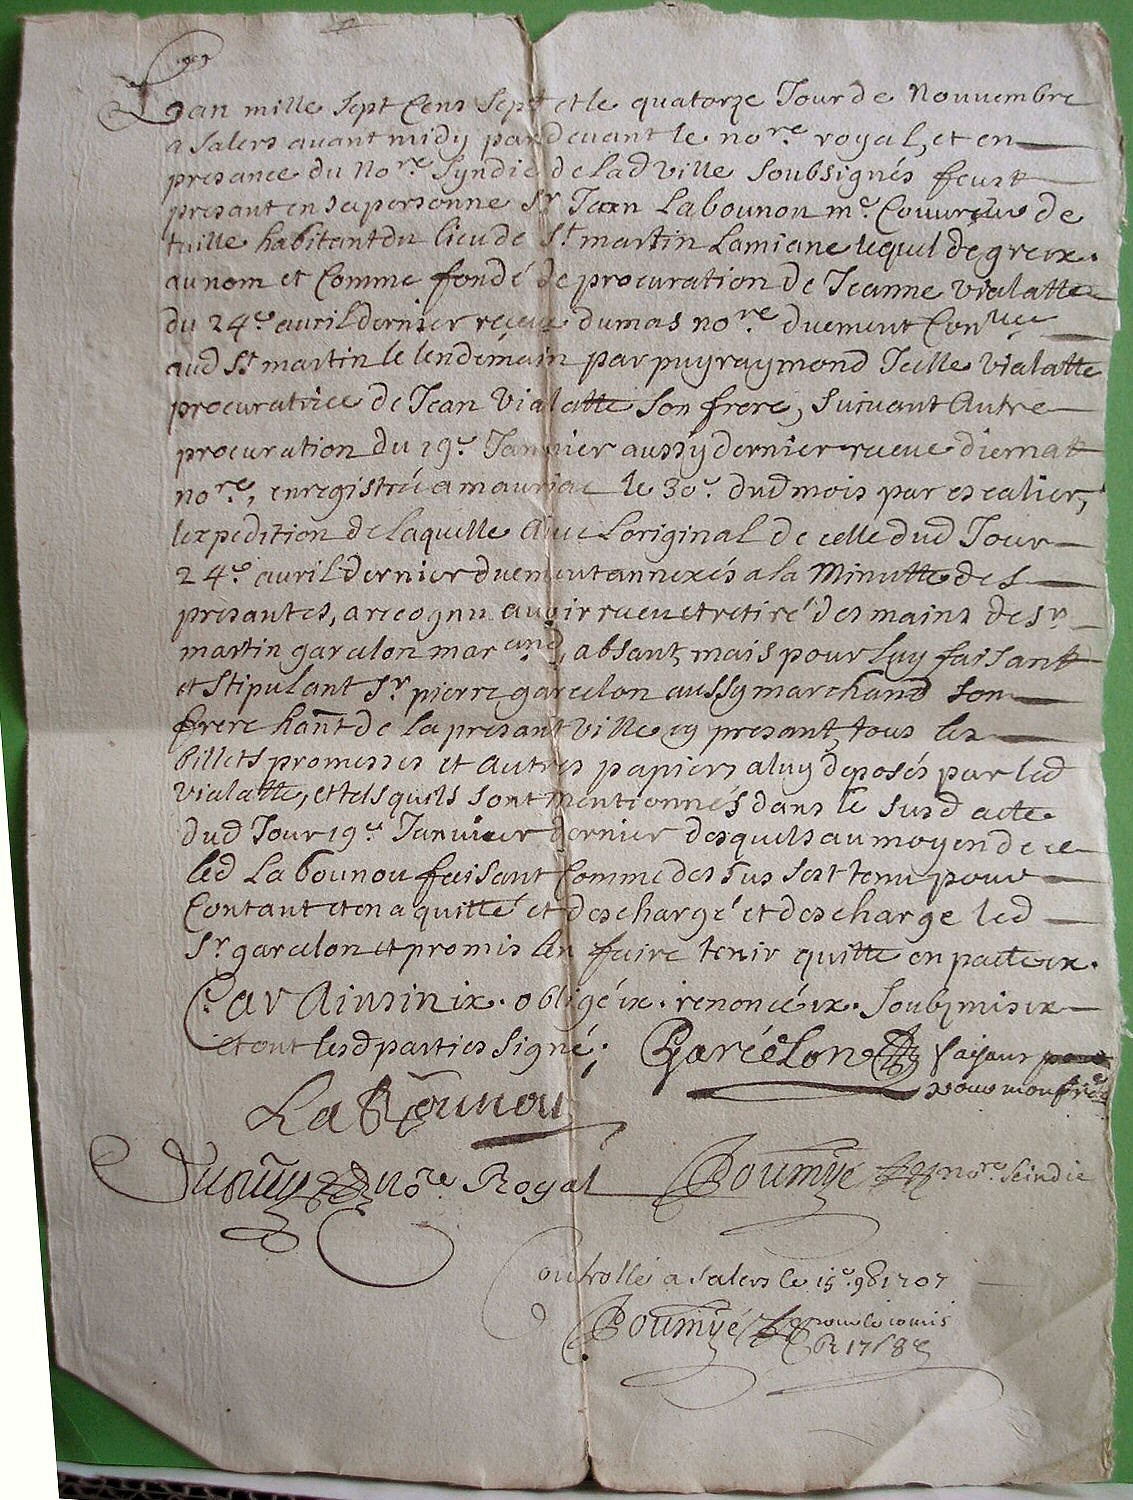 Lan mille sept Cens sept et le quatorze Jour de Nouvembre
a Salers avant midy pardevant le no.re royal, et en
presance du No.re Syndic de lad ville soubsignés feust
presant en sa personne Sr. Jean Labounou m.e Couvreur de
tuille habitant du lieu de St. martin
au nom et Comme fondé de procuration de Jeanne Vialatte
du 24.e avril dernier receue dumas no.re duement Con.lée
aud St martin le lendemain par puyraymond Icelle Vialatte
procuratrice de Jean Vialatte son frere, suivant Autre
procuration du 19.e Janvier aussy dernier receue diernat
no.re, enregistrée a mauriac le 30.e dud mois par escalier,
lexpedition de laquelle avec Loriginal de celle dud Jour
24.e avril dernier duement annexés a la Minutte des
presantes, a recognu avoir receu et retiré des mains de Sr
martin garcelon marcand, absant, mais pour luy faisant
et stipulant Sr. pierre garcelon aussy marchand son
frere hant de la presant ville cy presant, tous les
billets promesses et autres papiers a luy deposés par led
vialatte, et tels quils sont mentionnés dans le susd acte
dud Jour 19.e Janvier dernier desquels au moyen de ce
led Labounou faisant Comme dessus sest tenu pour
Contant et en a quitté et deschargé et descharge led
Sr. garcelon et promis len faire tenir quitte
Car Ainsin obligé renoncé Soubzmis
et ont lesd parties signé; Garcelon faijant
pour mon frère
LaBounou
no.re Royal Poumyé no.re scindic
Controllé a Salers le 15.e 9b 1707
Poumyé pour le comis